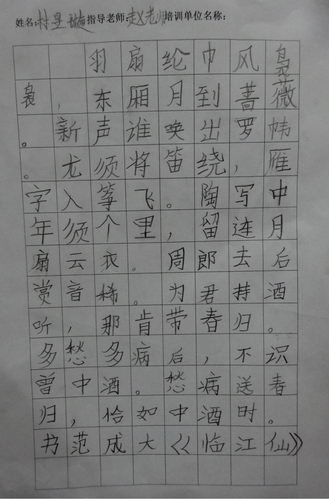 姓名: 指导老师:赵老师 培训单位名称:
羽扇纶巾风袅
袅,东厢月到蔷薇
。新声谁唤出罗帏
。尤须将笛绕,雁
字入筝飞。陶写中
年须个里,留连月
扇云衣。周郎去后
赏音稀。为君持酒
听,那肯带春归。
多愁多病后,不识
曾中酒。愁病送春
归,恰如中酒时。
书范成大《临江仙》